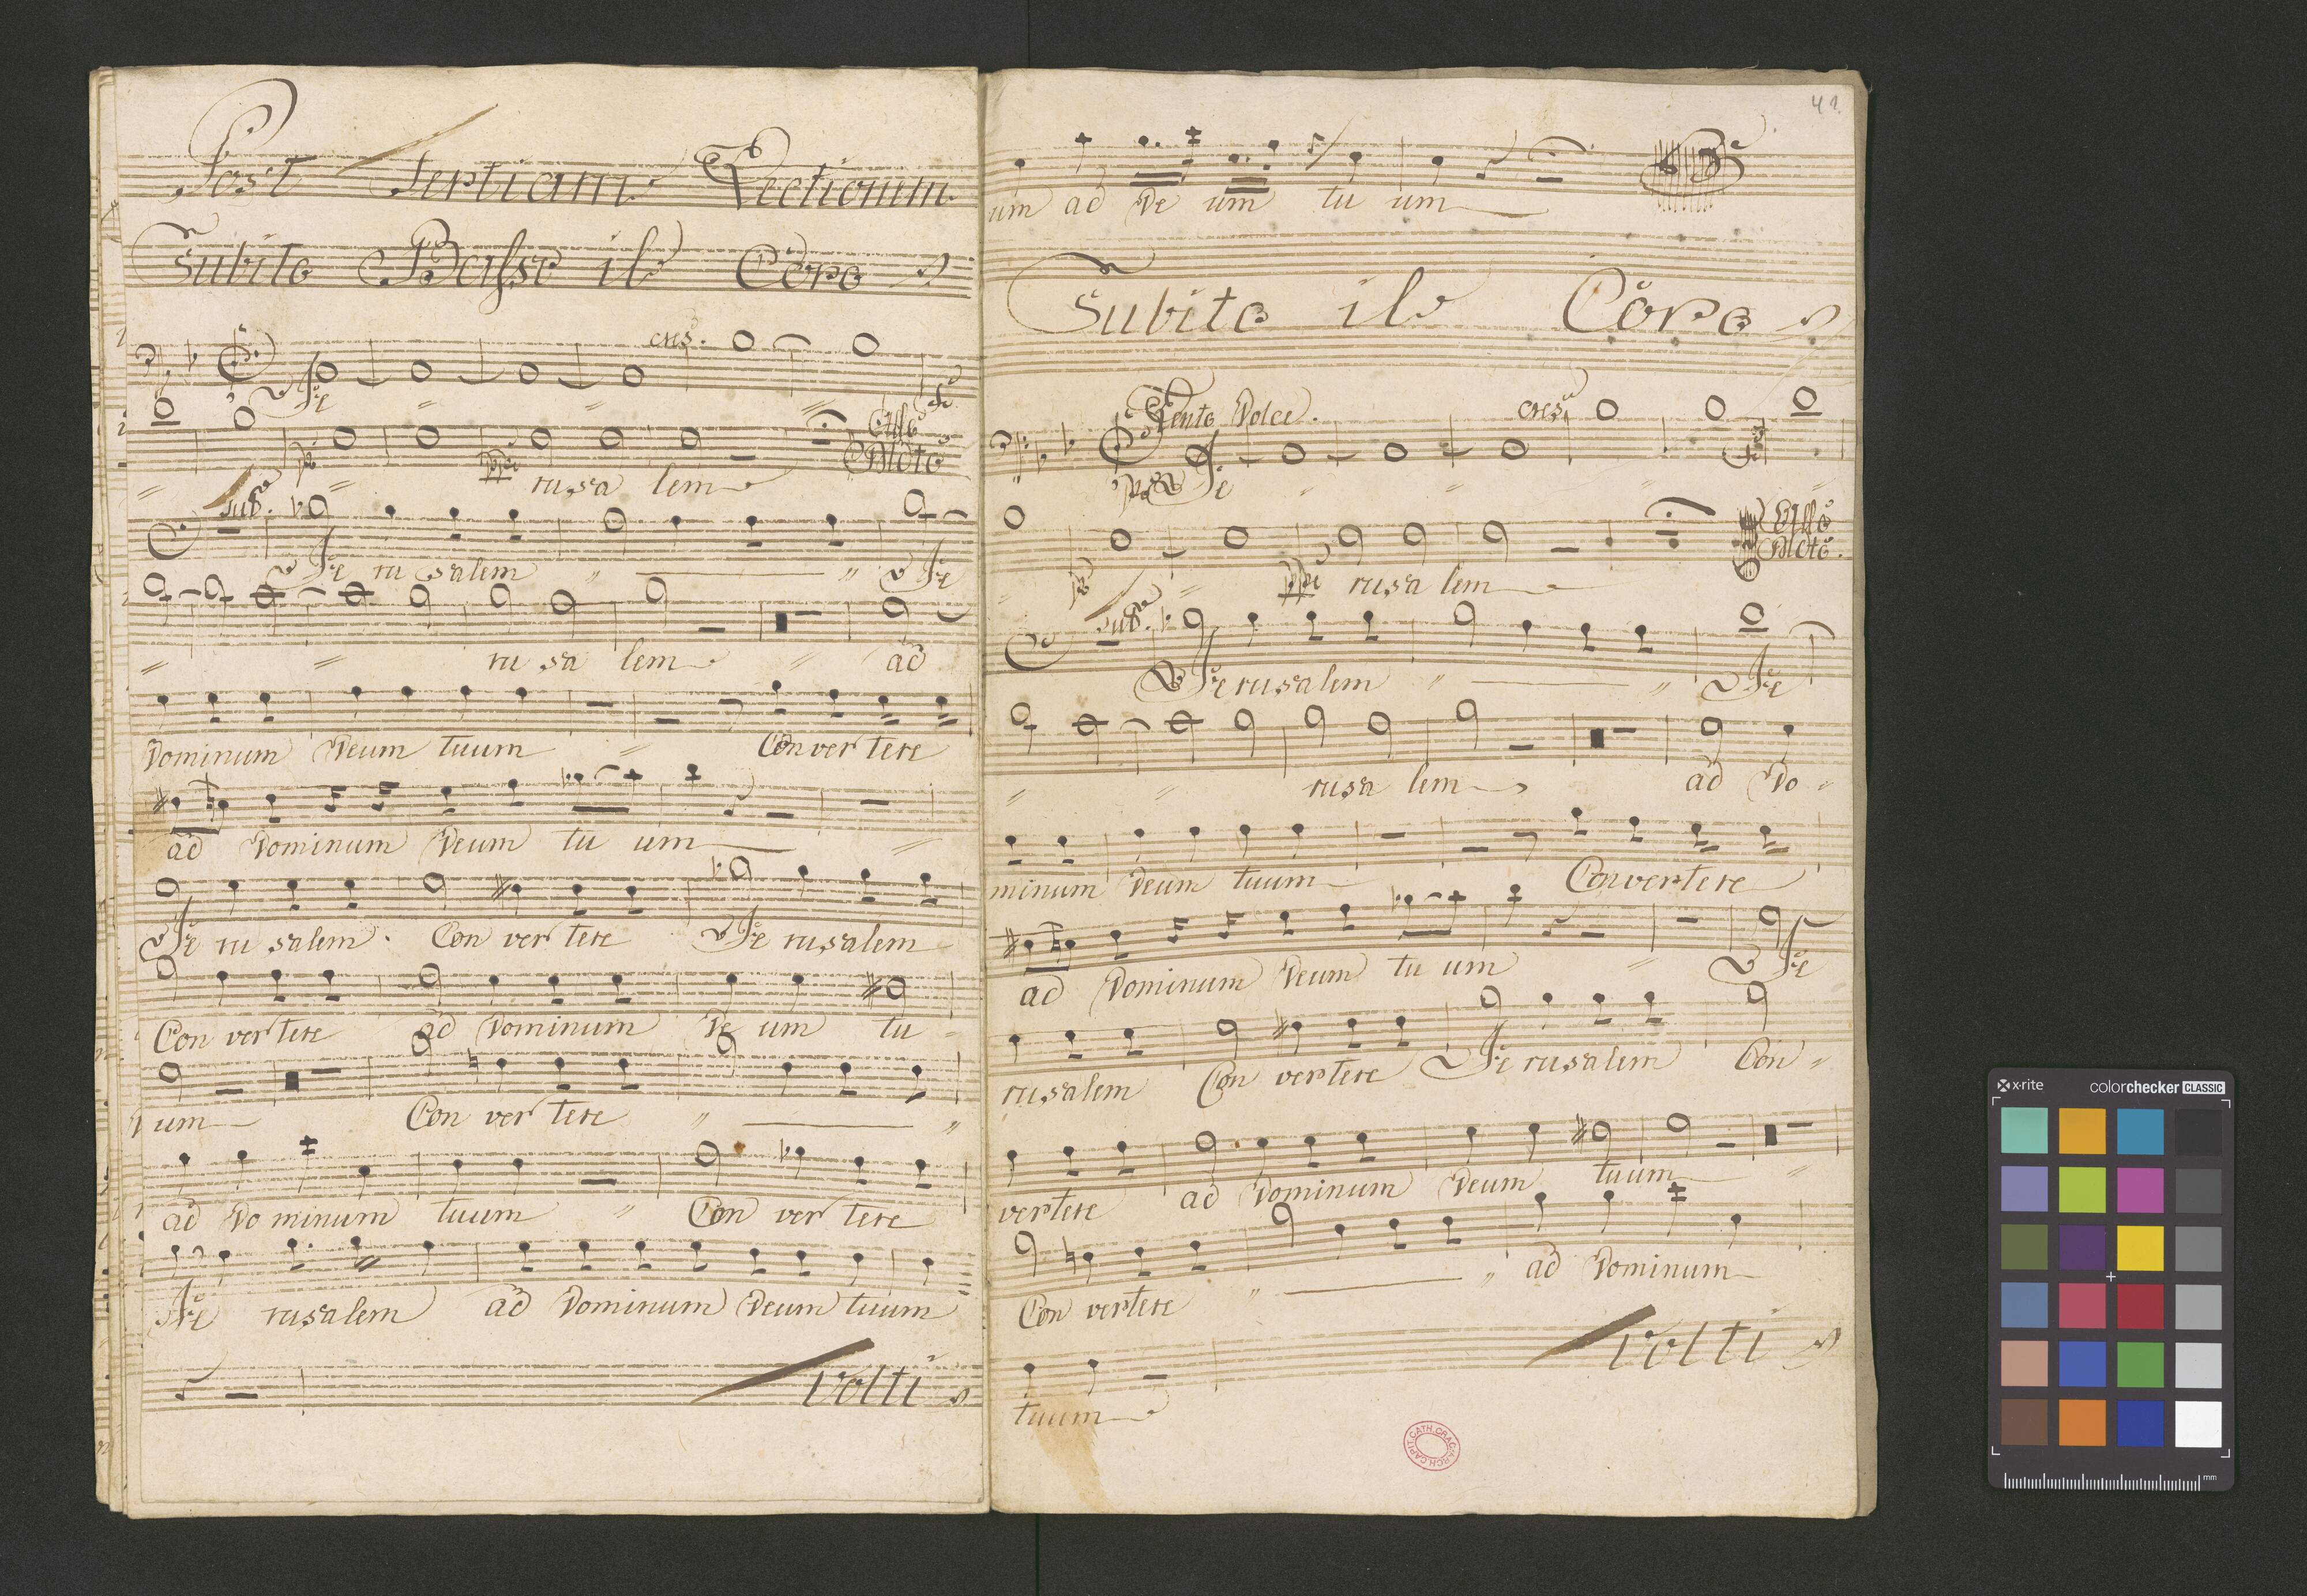 Post Tertiam Lectionem
Subito Basso il Coro
cres.
Je
Allo
Moto
rusa lem
sub.
Je ru salem Je
ru sa lem ad
Dominum Deum tuum Con ver tere
ad Dominum Deum tu um
Je ru salem Con ver tere Je rusalem
Con ver tere ad Dominum De um tu
um Con ver tere
ad Do minum tuum Con ver tere
Je rusalem ad Dominum Deum tuum
Volti
41.
um ad De um tu um
Subito il Coro
Lento Dolce. cres.
Je
Allo
Moto.
rusa lem
sub.
Je rusalem Je
rusa lem ad Do
minum Deum tuum Convertere
ad Dominum Deum tu um Je
rusalem Con vertere Je rusalem Con
vertere ad Dominum Deum tuum
Con vertere ad Dominum
Volti
tuum
ARCH.CAPIT.CATH.CRAC.
x-rite colorchecker CLASSIC
mm